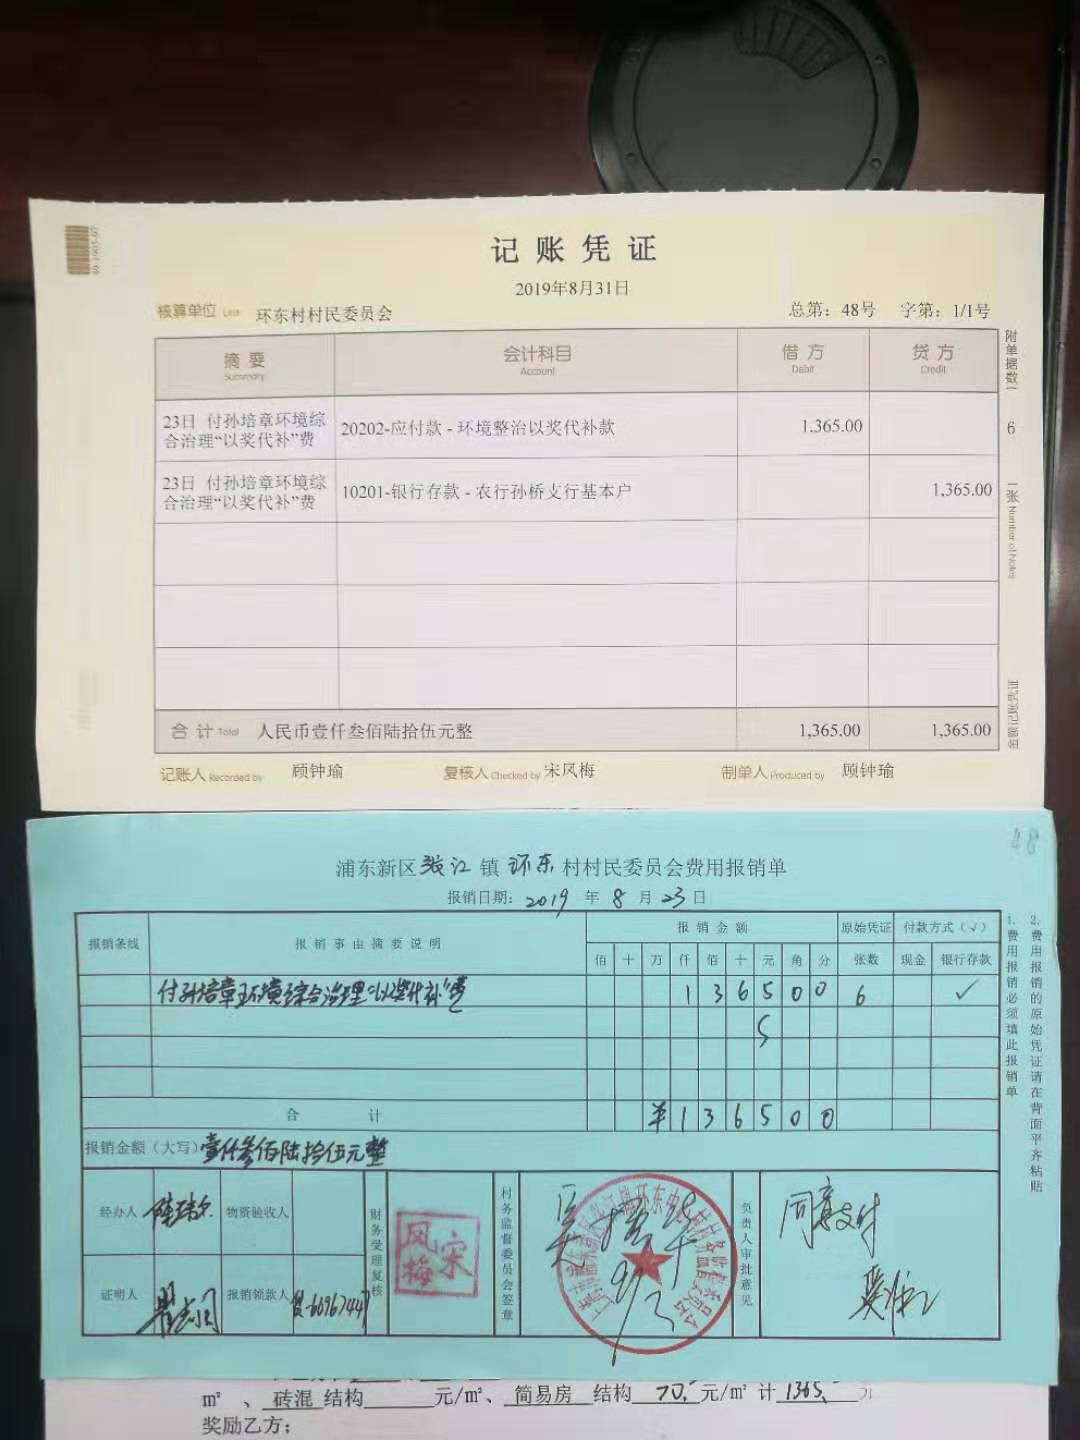 记账凭证
2019年8月31日
核算单位 Unit 环东村村民委员会 总第：48号 字第：1/1号
摘要 Summary 会计科目 Account 借方 Debit 贷方 Credit
23日 付孙培章环境综合治理“以奖代补”费 20202-应付款 - 环境整治以奖代补款 1,365.00
23日 付孙培章环境综合治理“以奖代补”费 10201-银行存款 - 农行孙桥支行基本户 1,365.00
合计 Total 人民币壹仟叁佰陆拾伍元整 1,365.00 1,365.00
记账人 Recorded by 顾钟瑜 复核人 Checked by 宋凤梅 制单人 Produced by 顾钟瑜
附单据数（ 6 ）张 Number of Notes
48
浦东新区张江镇环东村村民委员会费用报销单
报销日期：2019年8月23日
报销条线 报销事由摘要说明 报销金额 原始凭证 付款方式（√）
佰 十 万 仟 佰 十 元 角 分 张数 现金 银行存款
付孙培章环境综合治理“以奖代补”费 1 3 6 5 0 0 6 √
5
合计 ¥ 1 3 6 5 0 0
报销金额（大写）壹仟叁佰陆拾伍元整
经办人 物资验收人
证明人 报销领款人
财务受理复核
宋凤梅
村务监督委员会签章
负责人审批意见
同意支付
1. 费用报销必须填此报销单
2. 费用报销的原始凭证请在背面平齐粘贴
m²、砖混 结构 元/m²、简易房 结构 70.- 元/m² 计 1365.-
奖励乙方；